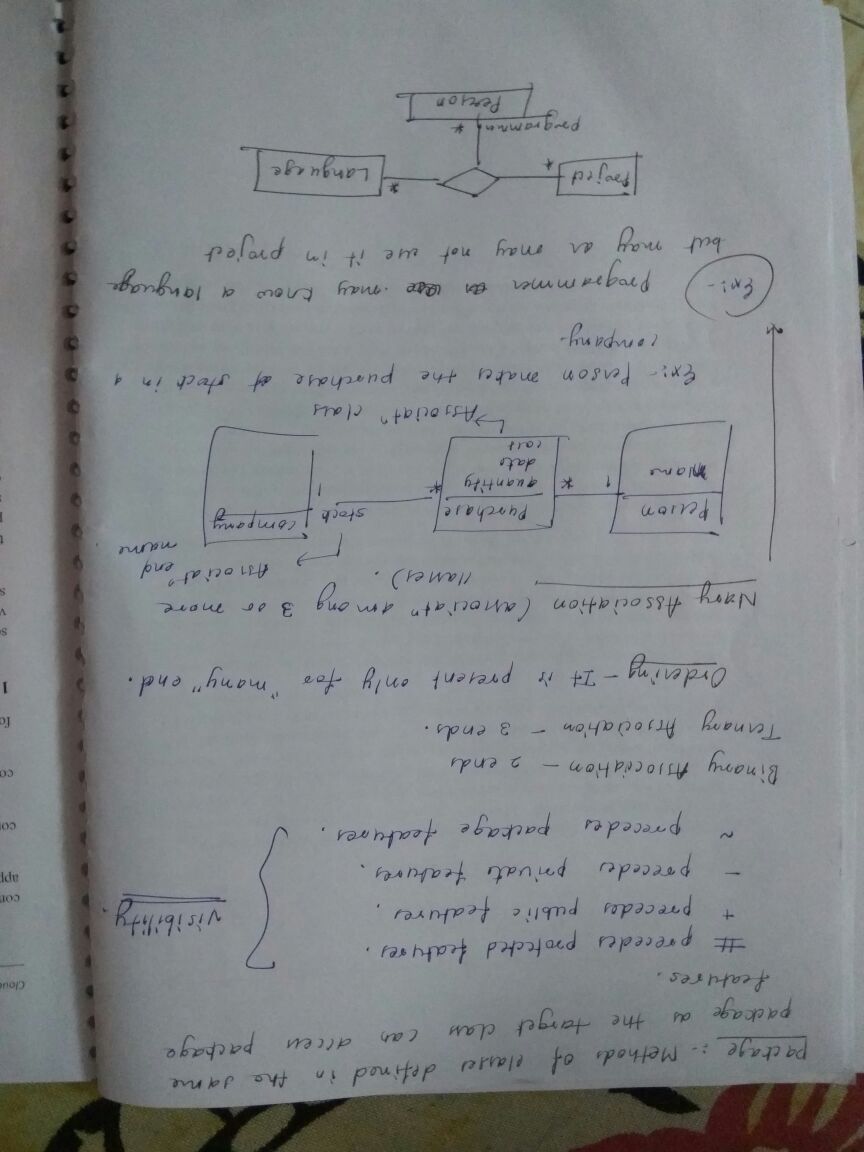 package :- Methods of classes defined in the same
package as the target class can access package
features.
# precedes protected features.
+ precedes public features.
- precedes private features.
~ precedes package features.
visibility.
Binary Association - 2 ends
Ternary Association - 3 ends.
Ordering - It is present only for "many" end.
Nary Association (associatⁿ among 3 or more
classes).
Associatⁿ end
name
Person
name
1
*
Purchase
quantity
date
cost
*
stock
1
company
Associatⁿ class
Ex:- Person makes the purchase of stock in a
company.
Ex:- Programmer may know a language
but may or may not use it in project
Project
*
*
Language
programmer
*
Person